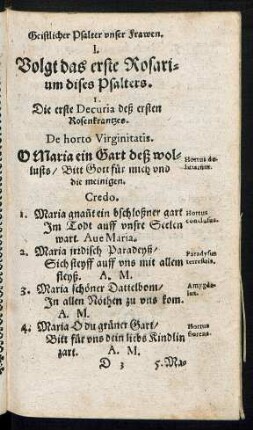 Geistlicher Psalter vnser Frawen.
I.
Volgt das erste Rosari-
um dises Psalters.
1.
Die erste Decuria deß ersten
Rosenkrantzes.
De horto Virginitatis.
O Maria ein Gart deß wol-
lusts / Bitt Gott für mich vnd
die meinigen.
Hortus de-
Credo.
1. Maria gnañt ein bschloßner gart
Im Todt auff vnsre Seelen
wart. Aue Maria.
Hortus
conclusus.
2. Maria irdisch Paradeyß /
Sich steyff auff vns mit allem
fleyß. A. M.
Paradysus
terrestris.
3. Maria schöner Dattelbom /
In allen Nöthen zu vns kom.
A. M.
4. Maria O du grüner Gart /
Bitt für vns dein liebs Kindlin
zart. A. M.
Hortus
D 3 5. Ma-